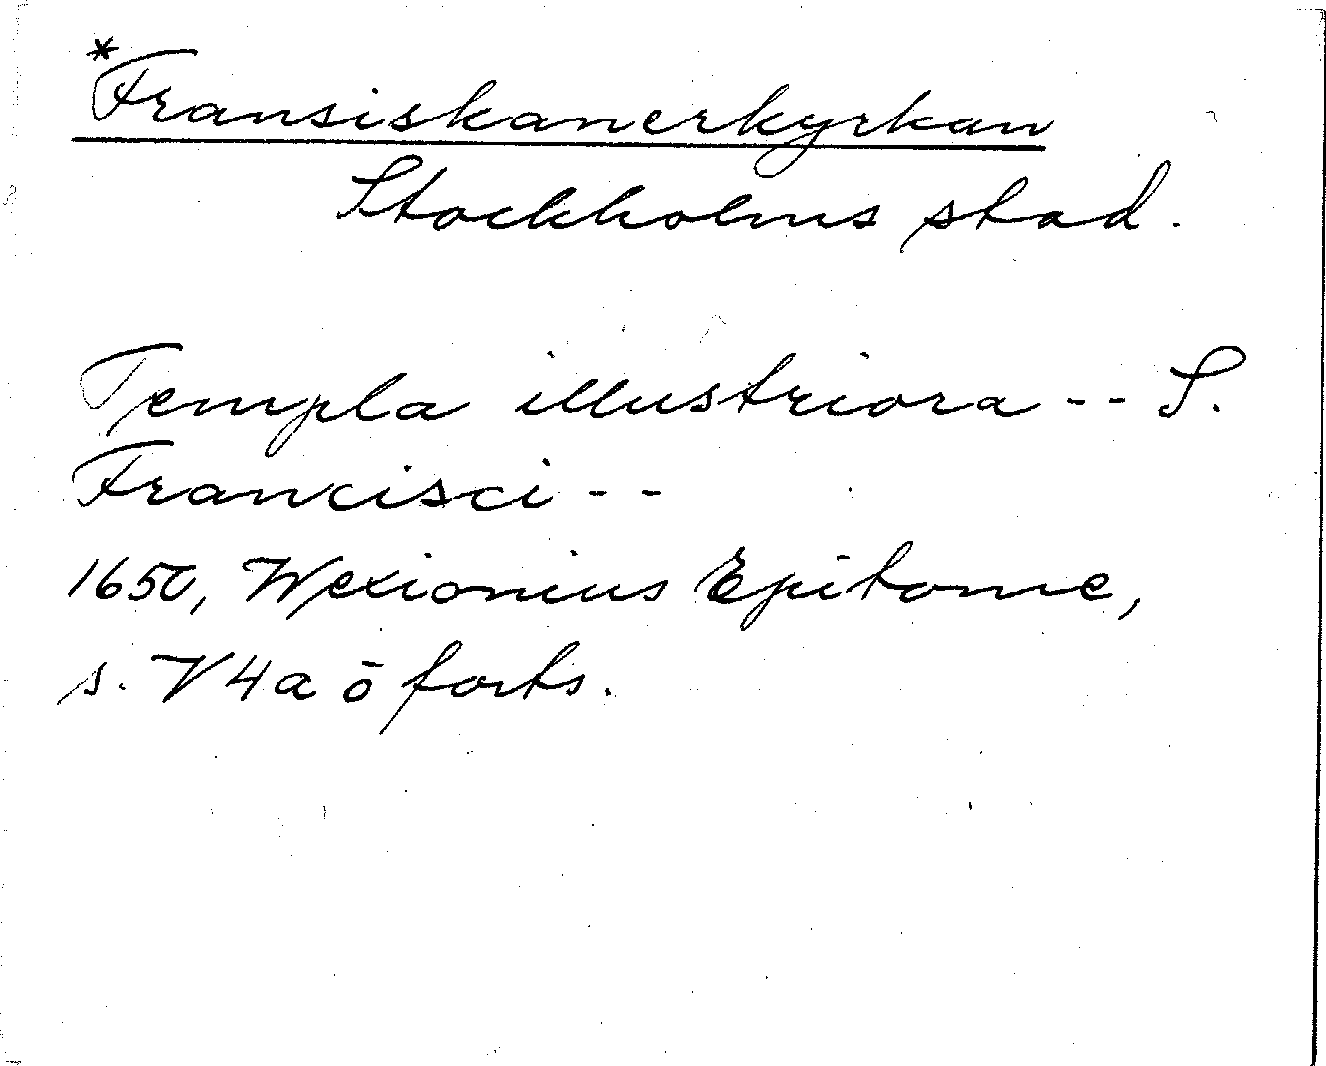 *Fransiskanerkyrkan
Stockholms stad.
Templa illustriora -- S.
Francisci --
1650, Wexionius Epitome,
s. V4a ö forts.